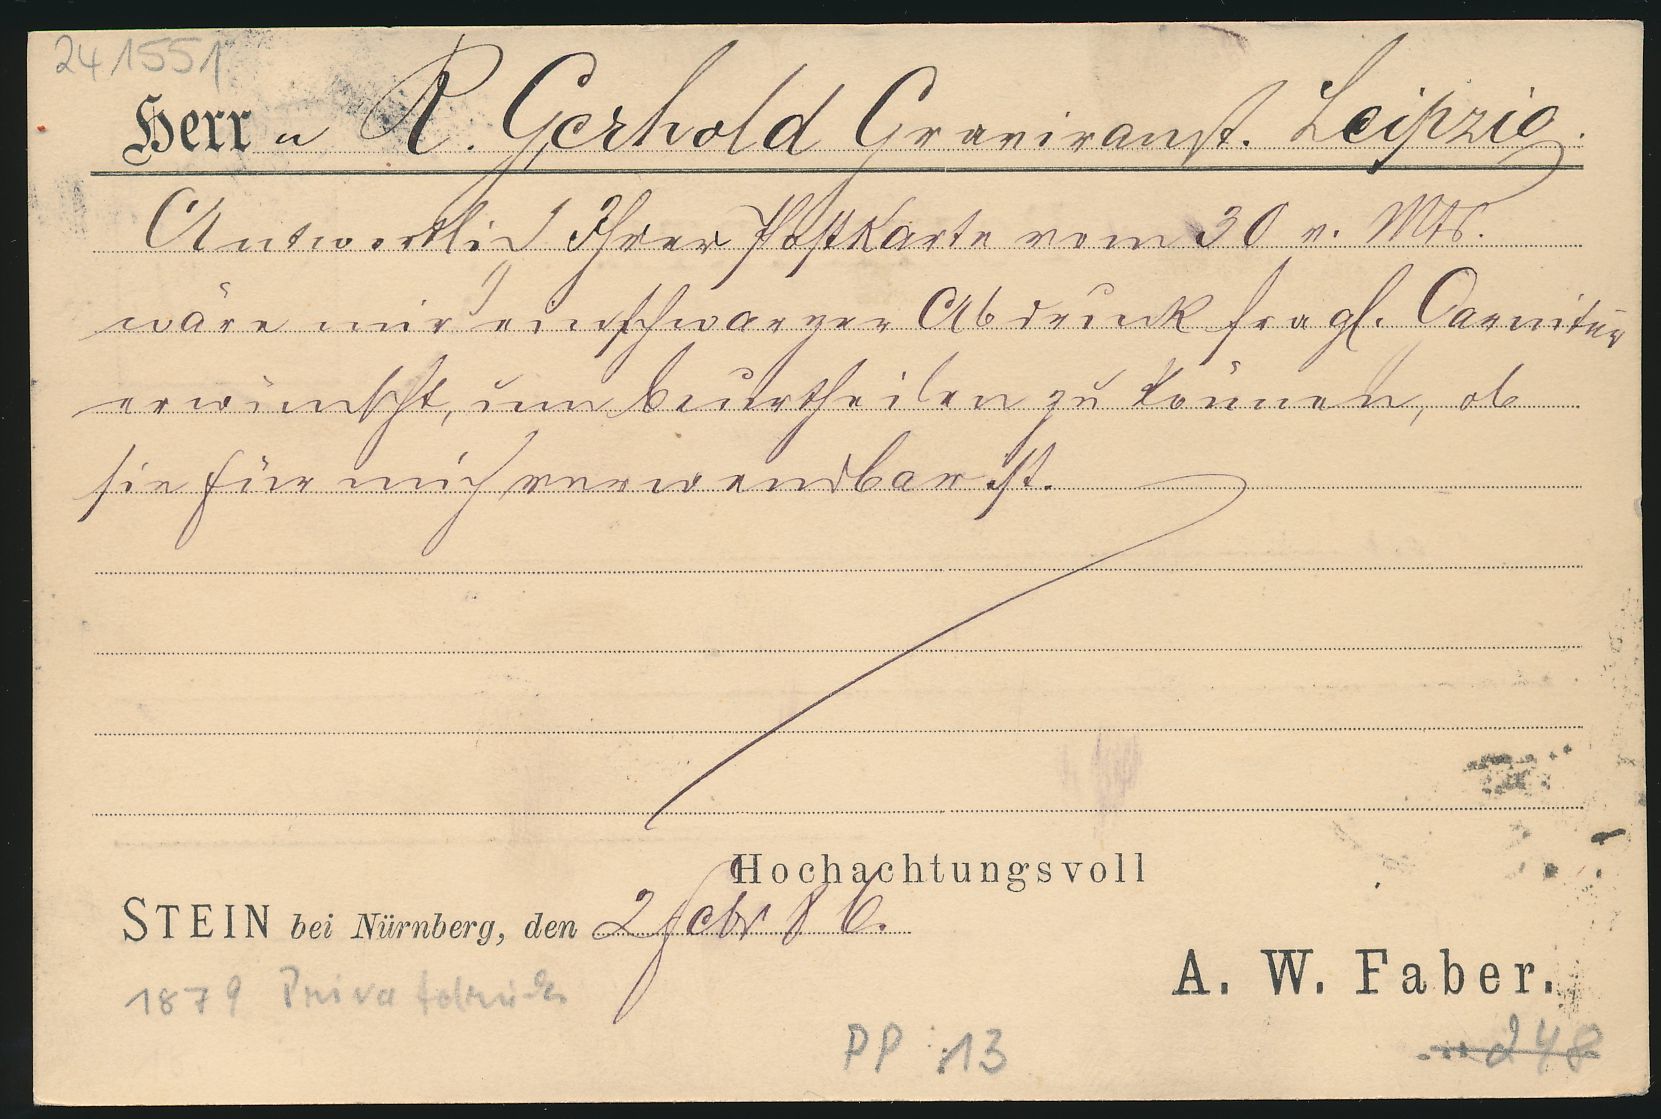 241551
Herrn R. Gerhold Graviranst. Leipzig.
Antwortlich Ihrer Postkarte vom 30 v. Mts.
wäre mir ein schwarzer Abdruck fragl. Garnitur
erwünscht, um beurtheilen zu können, ob
sie für mich verwendbar ist.
Hochachtungsvoll
STEIN bei Nürnberg, den 2 Febr 86.
A. W. Faber.
1879 Privatdruck
PP 13
248